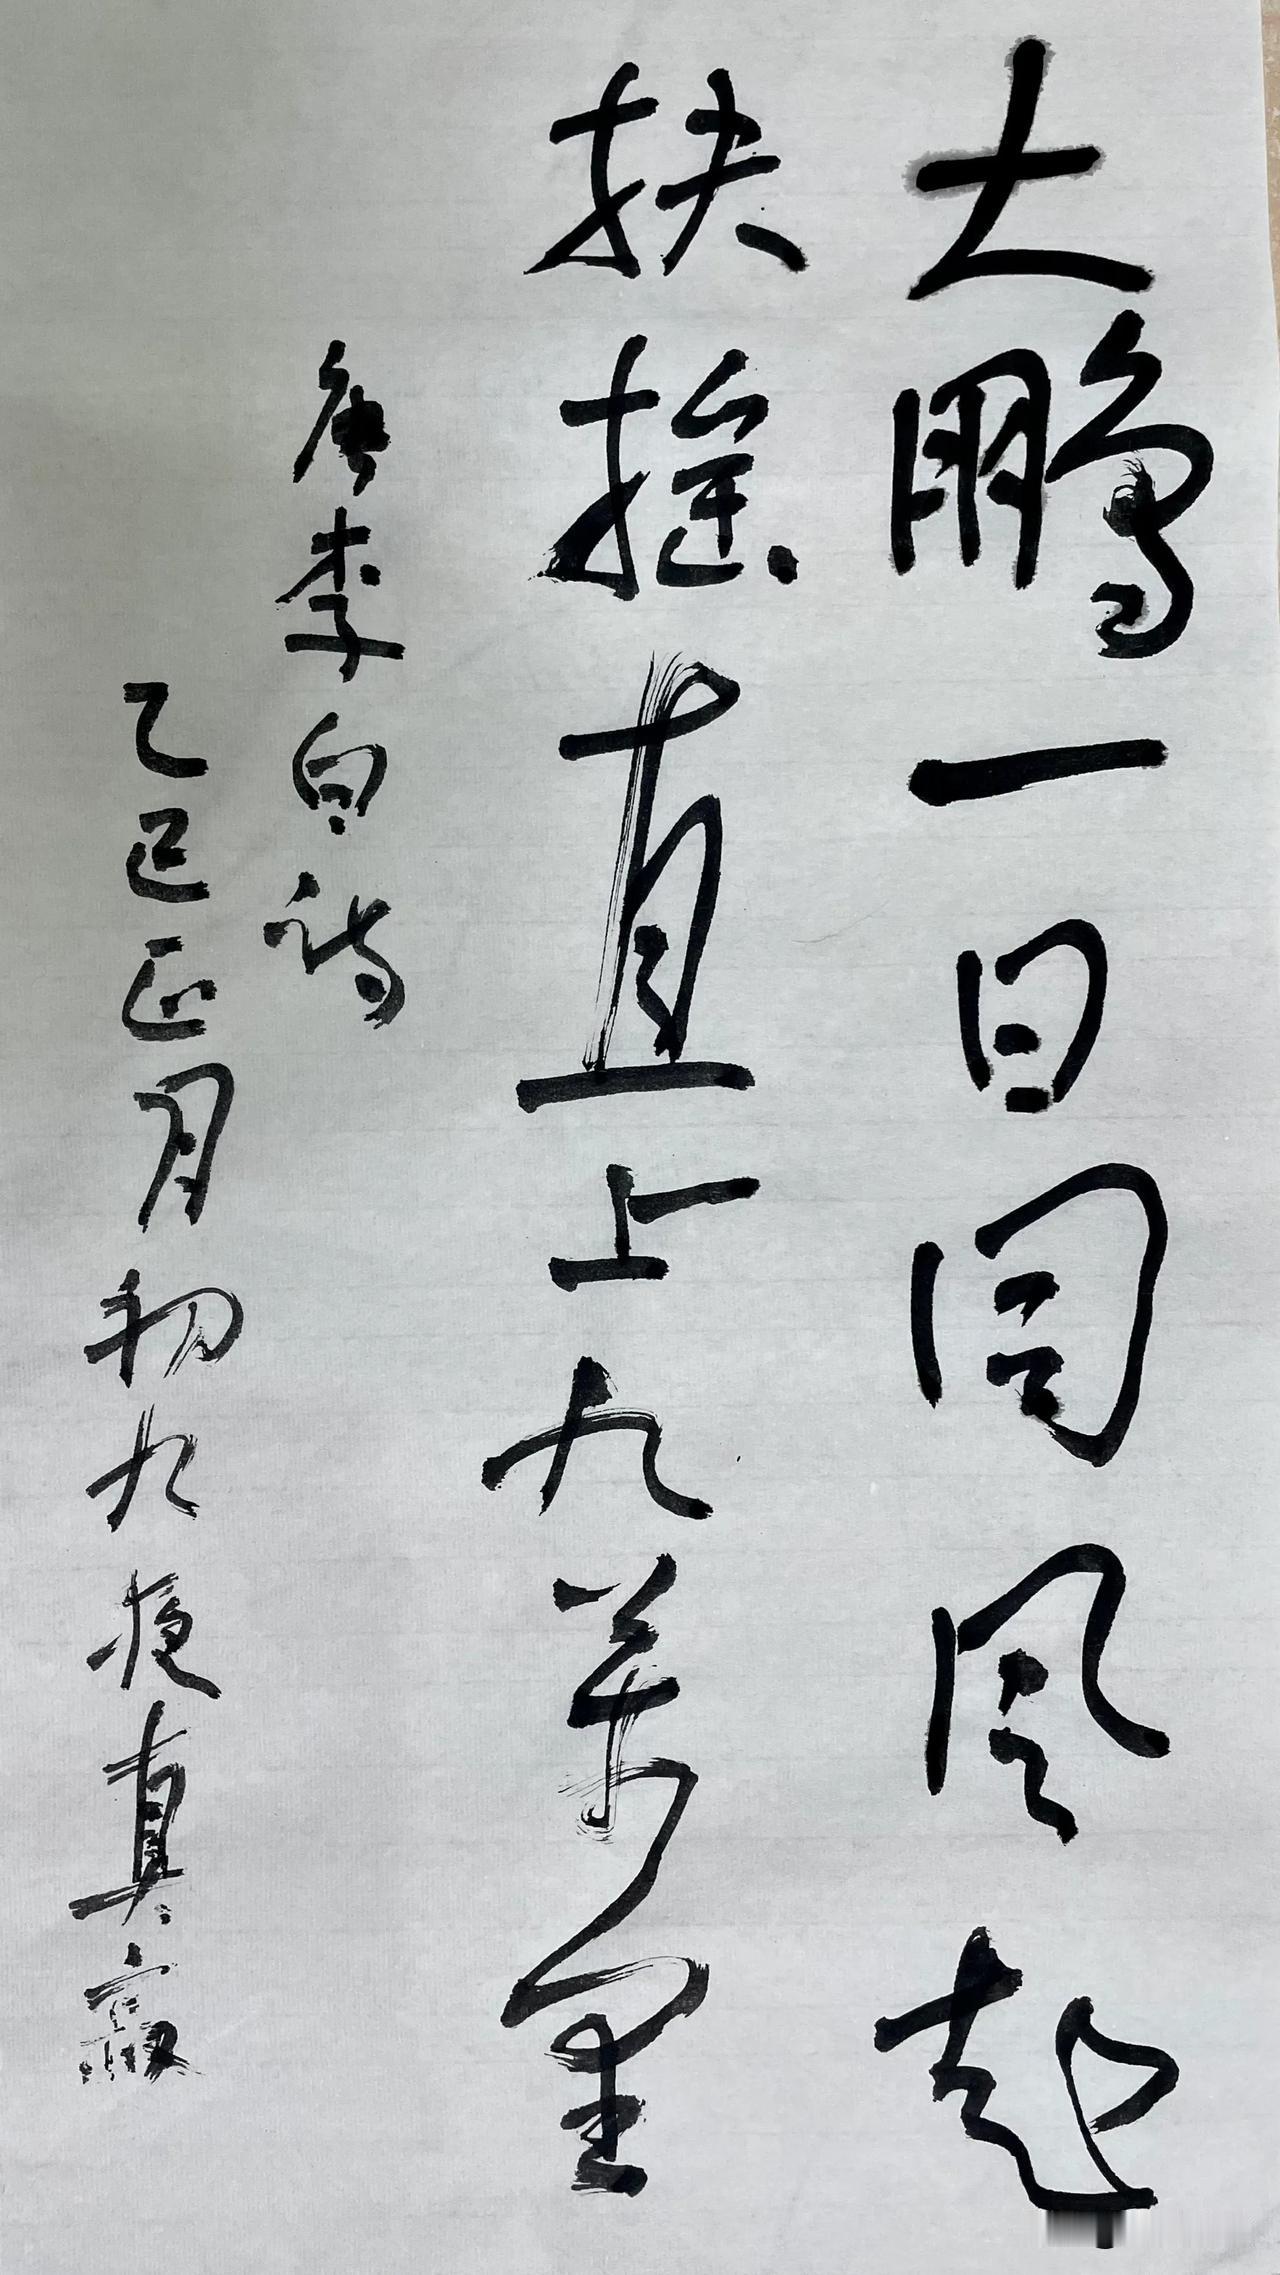 大鹏一日同风起
扶摇直上九萬里
唐李白诗
乙巳正月初九夜真